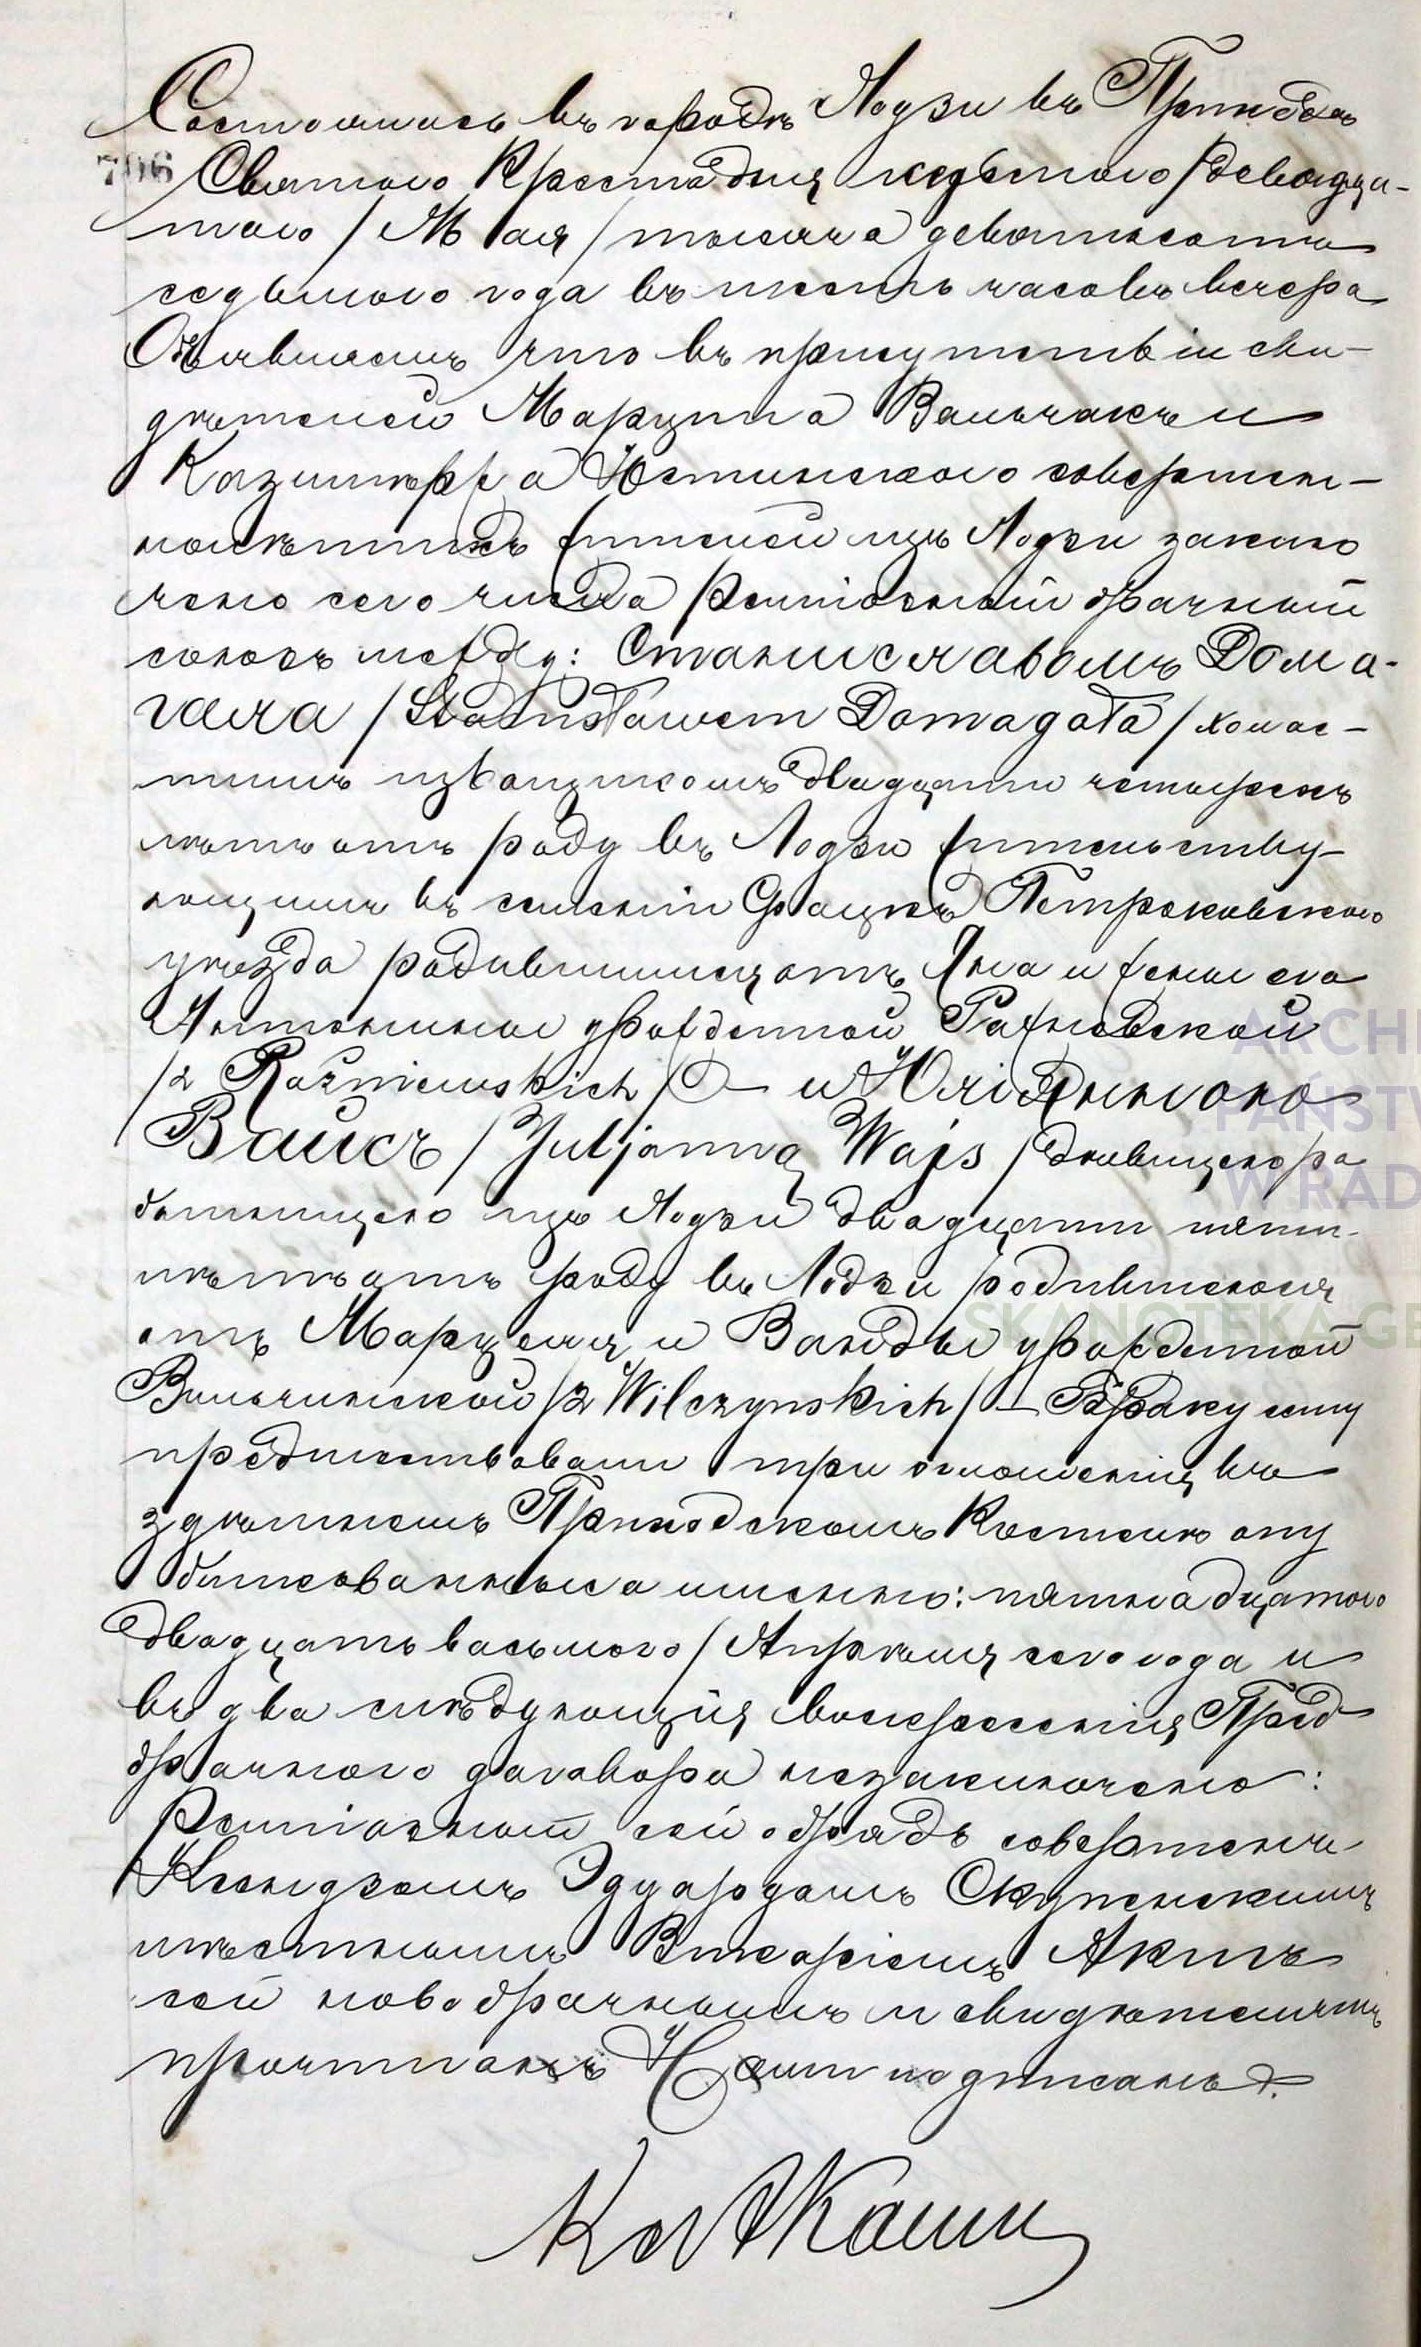 Состоялось въ городѣ Лодзи въ Приходѣ
706
Святого Креста дня седьмого / двадца-
таго / Мая / тысяча девятьсотъ
седьмого года въ шесть часовъ вечера
Объявляемъ что въ присутствіи сви-
дѣтелей Марцина Вальчакъ и
Казимѣржа Юстинскаго совершен-
нолѣтнихъ жителей изъ Лодзи заклю
чено сего числа религіозный брачный
союзъ между: Станиславомъ Дома-
гала / Stanisławem Domagała / холос-
тымъ извощикомъ двадцати четырехъ
лѣтъ отъ роду въ Лодзи жительству-
ющимъ въ селеніи Петроковскаго
уѣзда родившимся отъ Яна и жены его
Антонины урожденной Ражневской
/ z Rażniewskich / и Юліянною
Вайсъ / Juljanną Wajs / дѣвицею ра
ботницею изъ Лодзи двадцати пяти
лѣтъ отъ роду въ Лодзи родившеюся
отъ Марцелія и Ванды урожденной
Вильчинской / z Wilczynskich / – Браку сему
предшествовали три оглашенія въ
здѣшнемъ Приходскомъ Костелѣ опу
бликованныя а именно: пятнадцатого
двадцать восьмого / Апрѣля сего года и
въ два слѣдующія воскресенія Пред
брачного договора незаключено:
Религіозный сей обрядъ совершенъ
Ксендзомъ Эдуардомъ
мѣстнымъ Викаріемъ Актъ
сей новобрачнымъ и свидѣтелямъ
прочитанъ Нами подписанъ